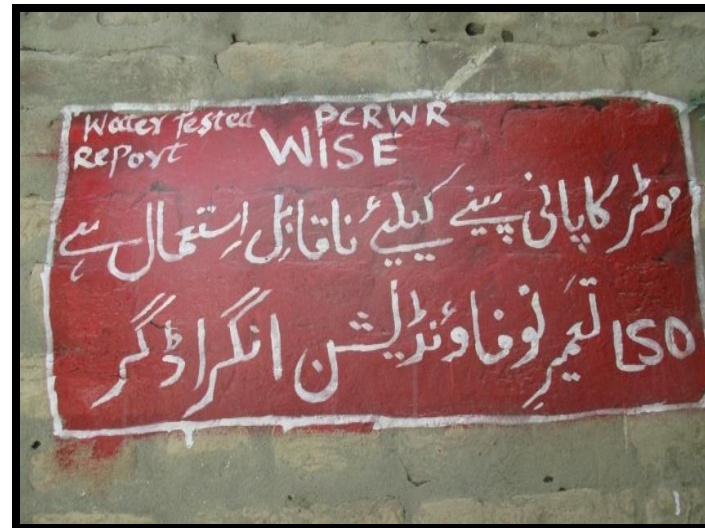 Water Tested PCRWR
Report WISE
موٹر کا پانی پینے کیلئے ناقابلِ اِستعمال ہے
LSO تعمیرِ نو فاؤنڈیشن انگرا ڈگر